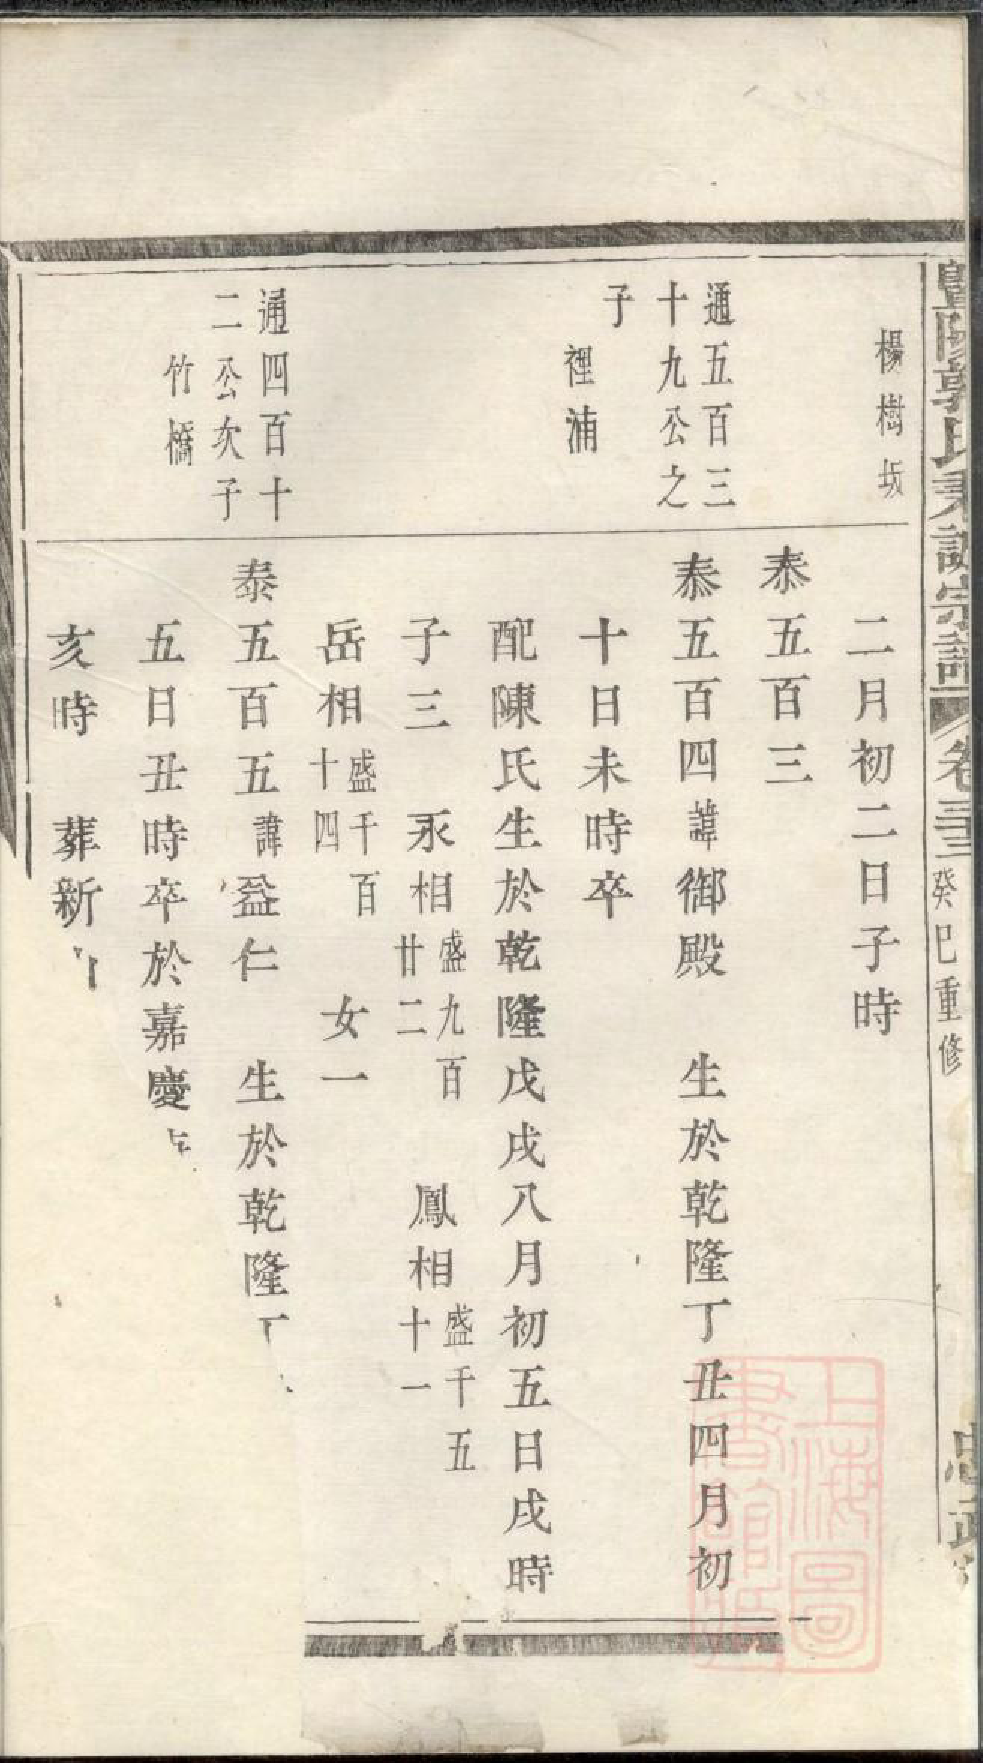 暨陽郭氏秉誠宗譜 卷三十三 癸巳重修
楊樹坂
二月初二日子時
泰五百三
通五百三
十九公之
子
裡浦
泰五百四諱御殿 生於乾隆丁丑四月初
十日未時卒
配陳氏生於乾隆戊戌八月初五日戌時
子三 永相盛九百廿二 鳳相盛千五十一
岳相盛千百十四 女一
通四百十
二公次子
竹橋
泰五百五諱益仁 生於乾隆丁
五日丑時卒於嘉慶
亥時 葬新
上海圖書館藏